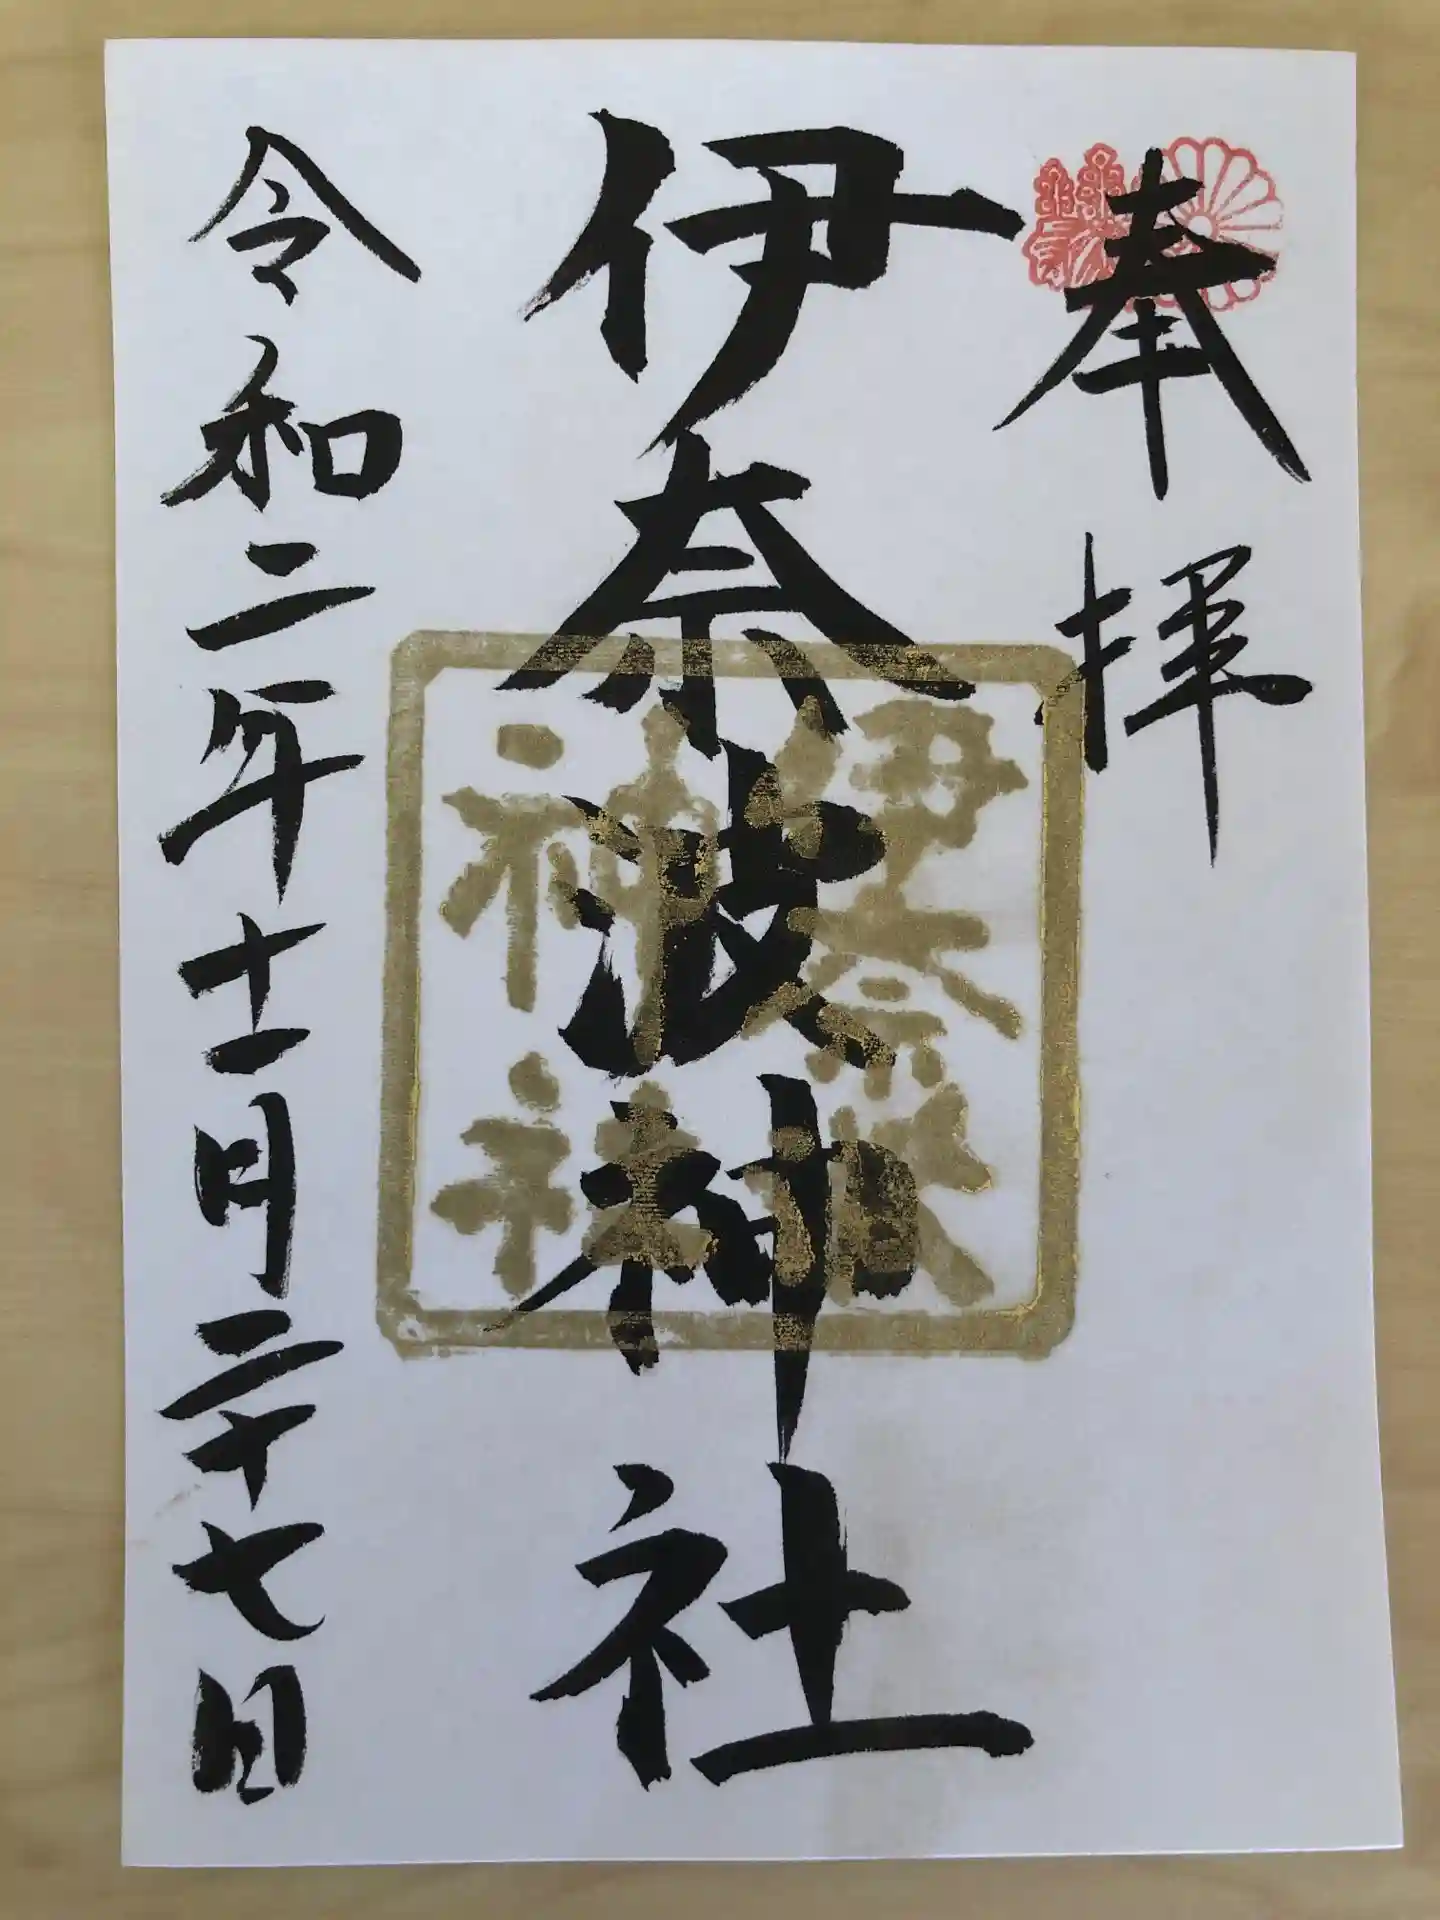 奉拝
伊奈波神社
伊奈波
神社
令和二年十二月二十七日